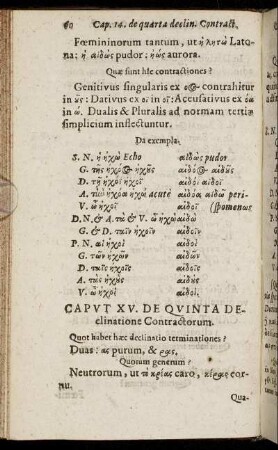 60 Cap. 14. de quarta declin. Contract.
Fœmininorum tantum, ut ἡ λητὼ Lato-
na: ἡ αἰδὼς pudor: ἠὼς aurora.
Quæ sunt hîc contractiones?
Genitivus singularis ex οος contrahitur
in ȣς: Dativus ex οι in οῖ: Accusativus ex οα
in ὼ. Dualis & Pluralis ad normam tertiæ
simplicium inflectuntur.
Da exempla.
S. N. ἡ ἠχὼ Echo αἰδὼς pudor
G. τῆς ἠχόος ἠχȣς αἰδόος αἰδȣς
D. τῇ ἠχόϊ ἠχοῖ αἰδόϊ αἰδοῖ
A. τὼ ἠχόα ἠχὼ acutè αἰδόα αἰδῶ peri-
V. ὦ ἠχοῖ αἰδοῖ (spomenως
D. N. & A. τὰ & V. ὦ ἠχὼ αἰδὼ
G. & D. ταῖν ἠχοῖν αἰδοῖν
P. N. αἱ ἠχοὶ αἰδοὶ
G. τῶν ἠχῶν αἰδῶν
D. ταῖς ἠχοῖς αἰδοῖς
A. τὰς ἠχȣς αἰδȣς
V. ὦ ἠχοὶ αἰδοὶ.
CAPVT XV. DE QVINTA DE-
clinatione Contractorum.
Quot habet hæc declinatio terminationes?
Duas: ας purum, & ρας.
Quorum generum?
Neutrorum, ut τὸ κρέας caro, κέρας cor-
nu.
Qua-